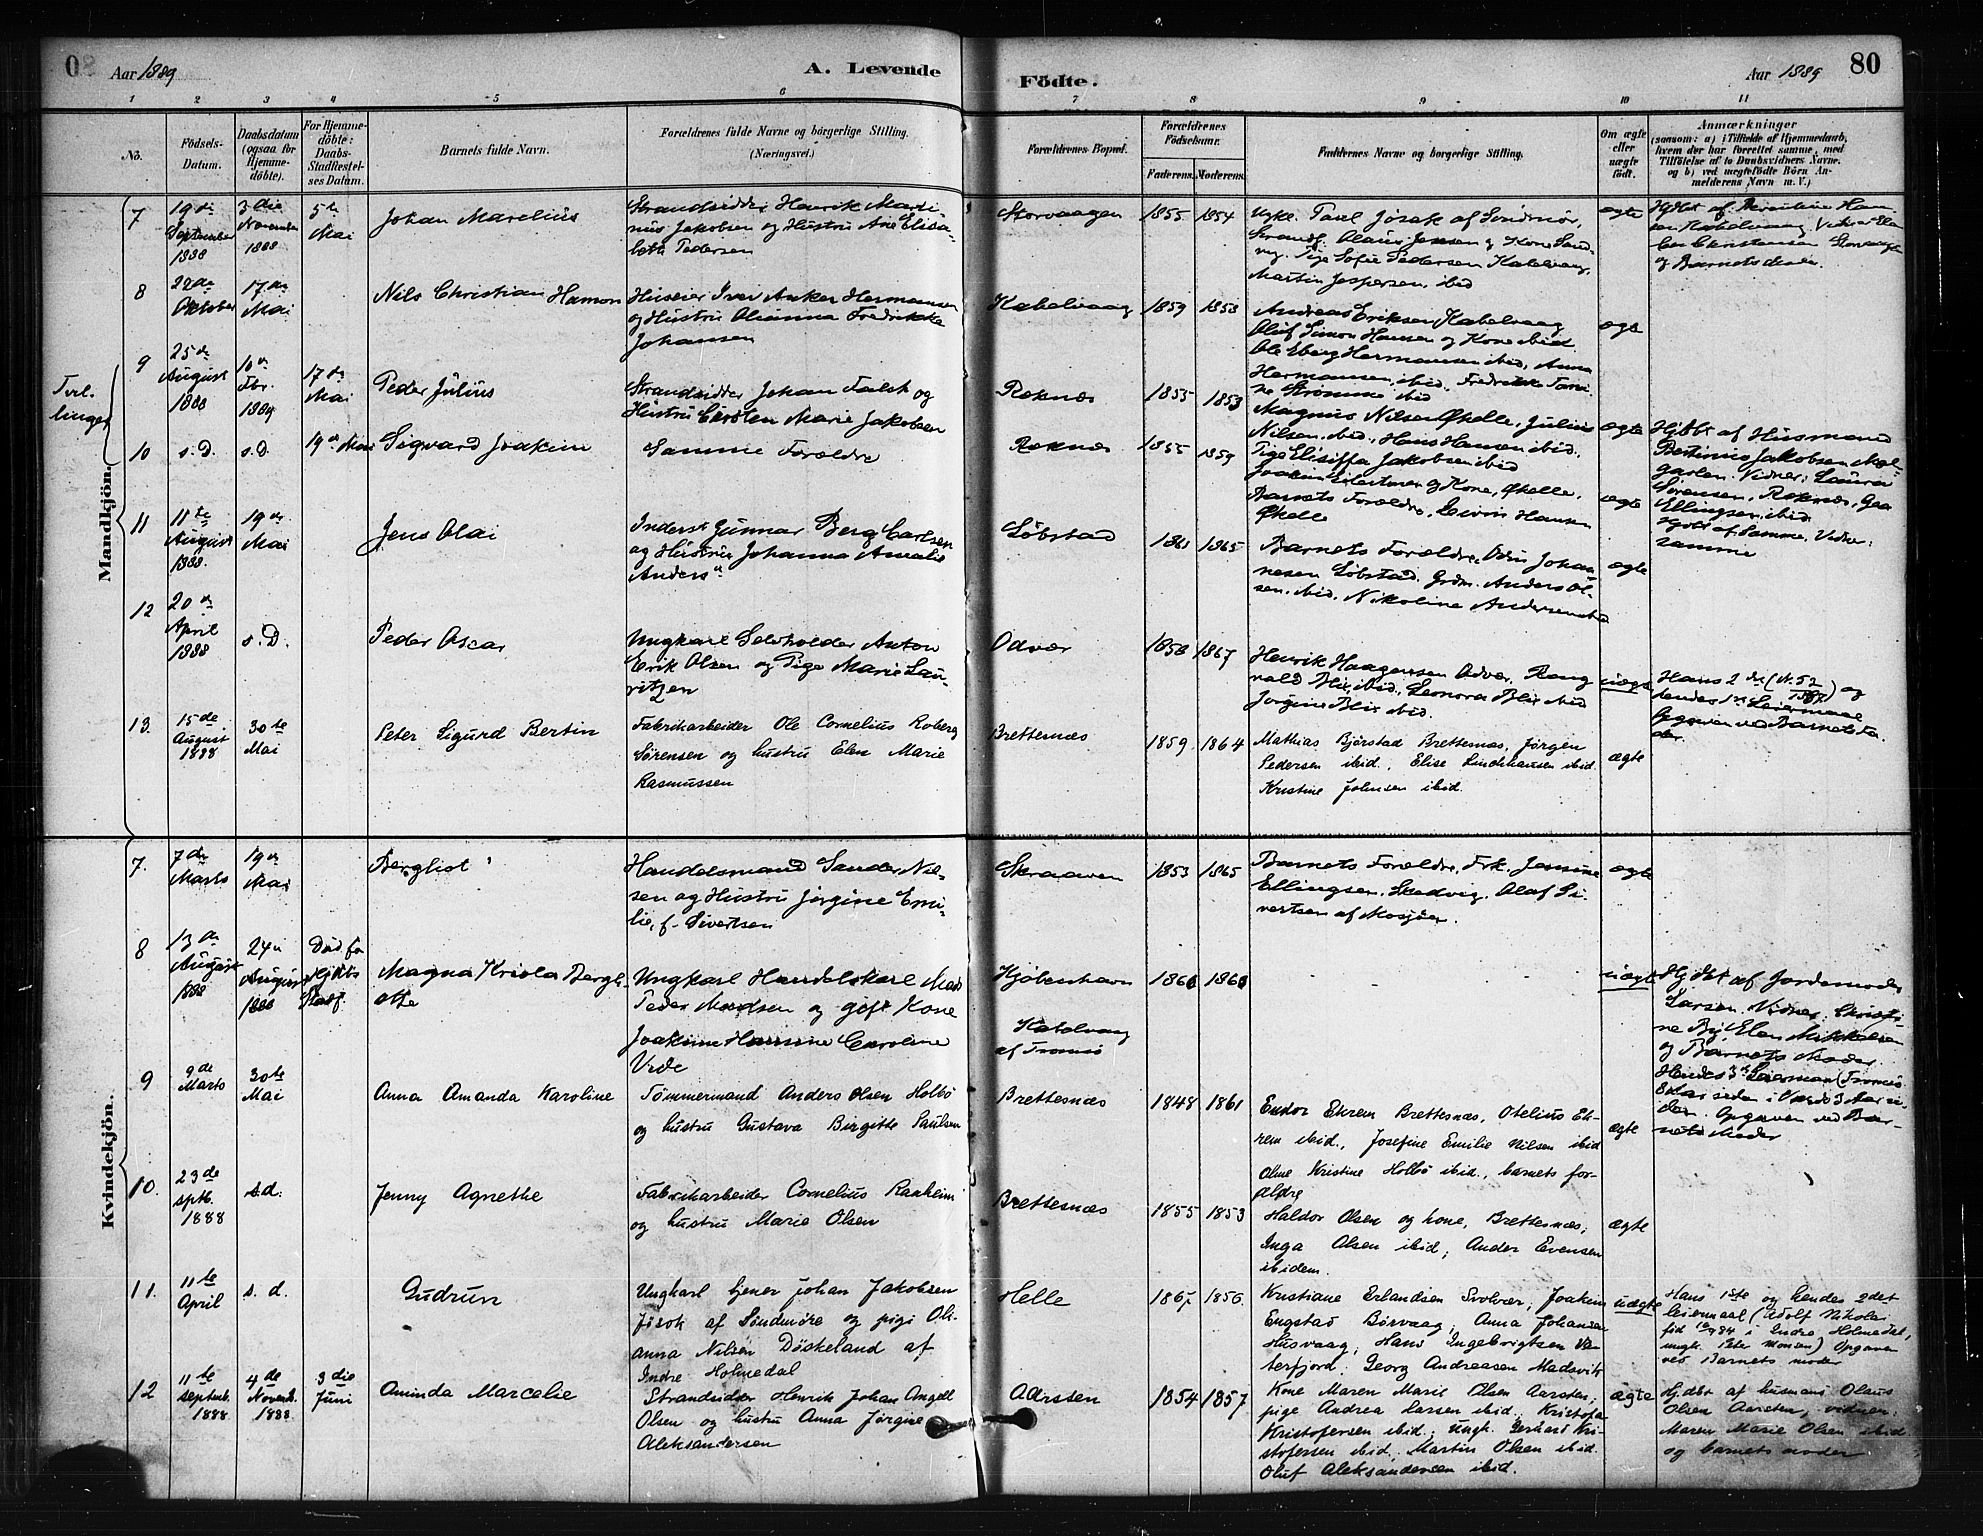 Aar 1889
A. Levende
Fødte.
Aar 1889
80
1 2 3 4 5 6 7 8 9 10 11
No.
Fødsels-
Datum.
Daabsdatum
(ogsaa for
Hjemme-
døbte).
For Hjemme-
døbte:
Daabs-
Stadfæstel-
ses Datum.
Barnets fulde Navn.
Forældrenes fulde Navne og borgerlige Stilling.
(Næringsvei.)
Forældrenes Bopæl.
Forældrenes
Fødselsaar.
Faderens. Moderens.
Faddernes Navne og borgerlige Stilling.
Om ægte
eller
uægte
født.
Anmærkninger
(saasom: a) i Tilfælde af Hjemmedaab,
hvem der har forrettet samme, med
Tilføielse af to Daabsvidners Navne.
og b) ved uægtefødte Börn An-
melderens Navn m. V.)
Mandkjøn.
7
19de
September
1888
3die
November
1888
5te
Mai
Johan Marelius
Strandsidder Henrik Mari
nus Jakobsen og Hustru Ane Elisa-
beth Pedersen
Storvaagen
1855 1854
Olaus Jensen og Kone
Pige Sofie Pedersen Kabelvaag,
Martin Jespersen ibid
ægte
Kabelvaag
Christensen Storvaagen
og Barnets Moder.
8
22de
Oktober
17de
Mai
Nils Christian Hamon
Huseier Iver Anker Hermansen
og Hustru Olianna Fredrikke
Johansen
Kabelvaag
1859 1853
Andreas Eriksen Kabelvaag
Oluf Simon Hansen og Kone ibid.
Ole Eberg Hermansen ibid, Anna
Hermansen ibid, Fredrikke
Strømme ibid
ægte
Tvil-
linger
9
25de
August
1888
10de
Fbr.
1889
17de
Mai
Peder Julius
Strandsidder Johan Falck og
Hustru Marie Jakobsen
Reknes
1855 1853
Magnus Nilsen Økelle, Julius
Nilsen ibid, Hans Hansen ibid.,
Pige Elisiffa Jakobsen ibid
ægte
Hjdbt af Husmand
Bertinus Jakobsen
Vidner: Laura
Sørensen, Reknes,
Ellingsen ibid
10
s. D.
s. D.
19de Mai
Sigvard Joakim
Samme Forældre
Reknes
1855 1859
Joakim og Kone, Økelle,
Barnets Forældre, Hansen
Økelle
ægte
Hjdbt af Samme, Vidner:
samme
11
11te
August
1888.
19de
Mai
Jens Olai
Inderst Gunnar Berg Carlsen
og Hustru Johanna Amalie
Anders.
Løbstad
1861 1865
Barnets Forældre, Odin Johan
nesen Løbstad. Grdm. Anders Ol-
sen ibid. Nikoline Andersen ibid
ægte
12
20de
April
1888
s. D.
Peder Oscar
Ungkarl Selvholder Anton
Erik Olsen og Pige Marie Lau-
ritzen
Odvær
1858 1867
Henrik Haagensen Odvær, Rang
vald Blix ibid, Leonora Blix ibid
Jørgine Blix ibid.
uægte
Hans 2de (N. 52
) og
hendes 1ste Leiermaal
Opgaven ved Barnets Fa-
der.
13.
15de
August
1888
30te
Mai
Peter Sigurd Bertin
Fabrikarbeider Ole Cornelius Roberg
Sörensen og hustru Elen Marie
Rasmussen
Brettesnæs
1859. 1864
Mathias Bjørstad Brettesnæs, Jørgen
Pedersen ibid., Elise Lindhansen ibid.
Kristine Johnsen ibid.
ægte
Kvindekjön.
7.
7de
Marts
19de
Mai
Bergliot
Handelsmand Sander Nil-
sen og Hustru Jørgine Emi-
lie, f. Sivertsen
Skraaven
1853 1865
Barnets Forældre, Frk. Jensine
Ellingsen, Skedvig, Olaf Si-
vertsen af Mosjøen.
ægte
8
13de
August
1888
24de
August
1888
Død før
Hjdbts
Stadf.
Magna Kriola Bergli-
otte
Ungkarl Handelskarl Mads
Peder Madsen og gift Kone
Joakime Hansine Caroline
Vide
Kjøbenhavn
Kabelvaag
af Tromsø
1860 1860
uægte
Hjdbt af Jordemoder
Larsen, Vidner: Christi-
ne By, Elen Mikkelsen
og Barnets Moder.
Hendes 3de Leiermaal (Tromsø
8 Aar siden i 3 Aar si-
den. Opgaven ved Bar-
nets Moder
9
9de
Marts
30te
Mai
Anna Amanda Karoline
Tömmermand Anders Olsen Holbø
og hustru Gustava Birgitte Paulsen
Brettesnæs
1848 1861
Endor Ekrem Brettesnæs, Otelius Ek-
rem ibid., Josefine Emilie Nilsen ibid
Oline Kristine Holbö ibid., barnets for-
ældre
ægte
10.
23de
septb.
1888
s. d.
Jenny Agnethe
Fabrikarbeider Cornelius Ranheim
og hustru Marie Olsen
Brettesnæs
1855 1853
Haldor Olsen og kone, Brettesnæs,
Inga Olsen ibid; Ander Evensen
ibidem.
ægte
11.
11te
April
s. d.
Gudrun
Ungkarl tjener Johan Jakobsen
af Söndmöre og pige Oli-
anna Nilsen Döskeland af
Indre Holmedal
Helle
1867 1856.
Kristiane Erlandsen Svolvær; Joakim
Engstad Börvaag; Anna Johansen
Husvaag; Hans Ingebrigtsen Væ-
terfjord. Georg Andreasen Madsvik
uægte
Hans 1ste og hendes 2det
leiermaal (Adolf Nikolai
i Indre Holmedal,
ungk. Peter Monsen) Opgaven
ved Barnets moder
12
11te
septemb.
1888.
4de
Novemb.
1888.
3die
Juni
Aminda Marcelie
Strandsidder Henrik Johan Angell
Olsen og hustru Anna Jørgine
Aleksandersen
AArsten
1854 1857
Kone Maren Marie Olsen Aarsten;
pige Andrea Larsen ibid. Kristofer
Kristofersen ibid.; Ungk. Gerhard Kri-
stofersen ibid. Martin Olsen ibid.
Oluf Aleksandersen ibid.
ægte
Hjdbt af husmand Olaus
Olsen Aarsten, vidner:
Maren Marie Olsen ibid.
og barnets moder